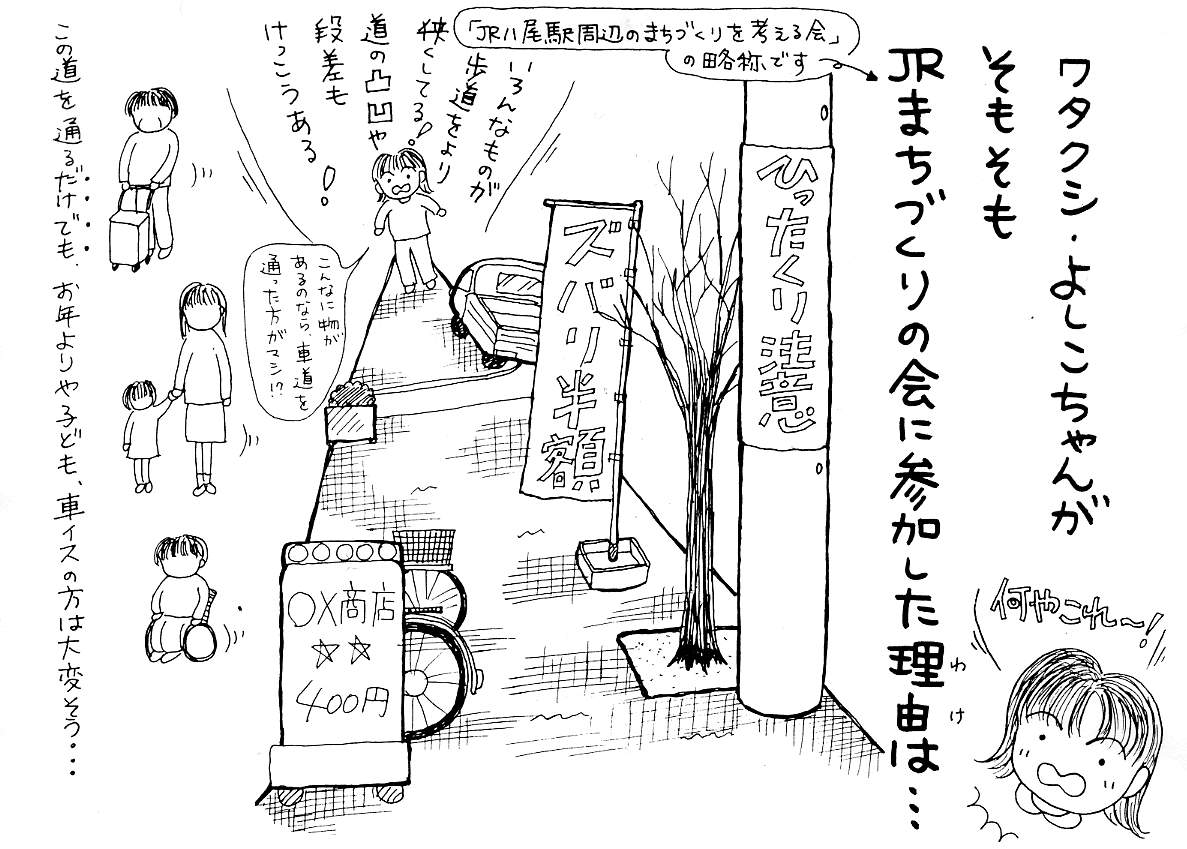 ワタクシ・よしこちゃんが
そもそも
JRまちづくりの会に参加した理由は…
わけ
「JR八尾駅周辺のまちづくりを考える会」
の略称です
何やこれ〜!
ひったくり注意
ズバリ半額
いろんなものが
歩道をより
狭くしてる!
道の凸凹や
段差も
けっこうある!
こんなに物が
あるのなら、車道を
通った方がマシ!?
○×商店
☆☆
400円
この道を通るだけでも、お年よりや子ども、車イスの方は大変そう…